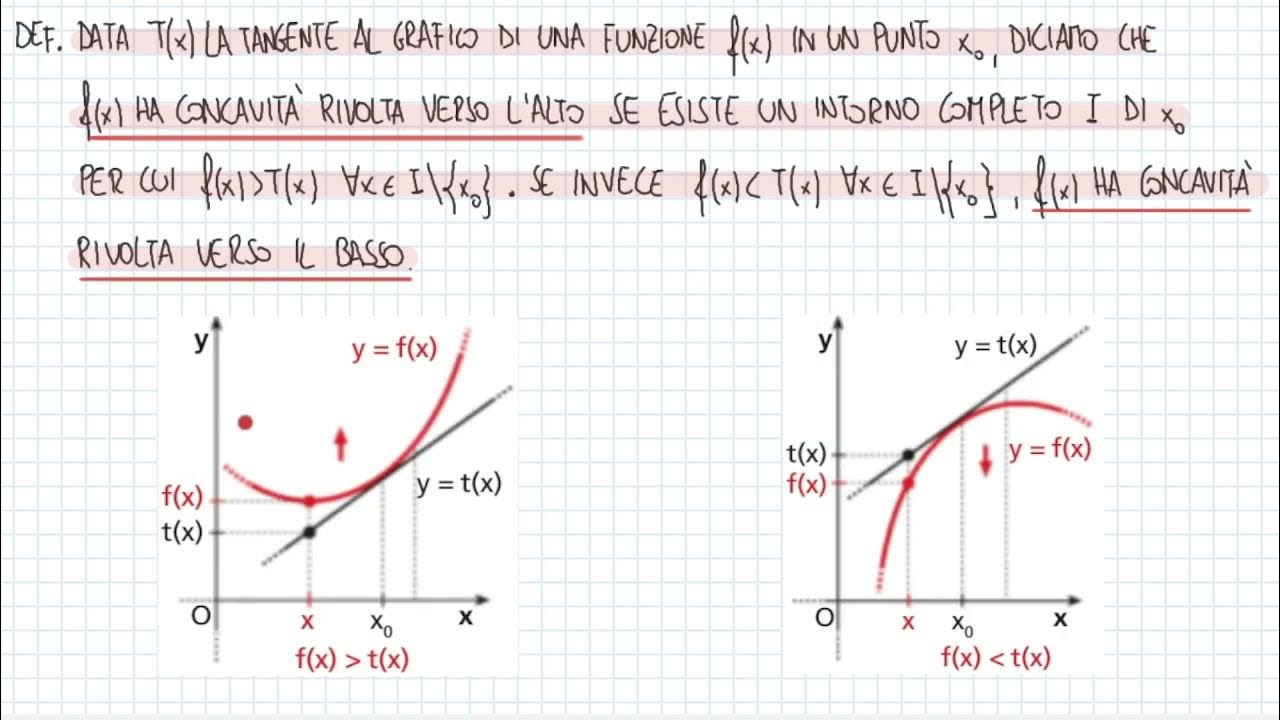 DEF. DATA T(x) LA TANGENTE AL GRAFICO DI UNA FUNZIONE f(x) IN UN PUNTO x₀, DICIAMO CHE
f(x) HA CONCAVITÀ RIVOLTA VERSO L'ALTO SE ESISTE UN INTORNO COMPLETO I DI x₀
PER CUI f(x)>T(x) ∀x∈I\{x₀}. SE INVECE f(x)<T(x) ∀x∈I\{x₀}, f(x) HA CONCAVITÀ
RIVOLTA VERSO IL BASSO.
y
y = f(x)
f(x)
y = t(x)
t(x)
O
x
x₀
x
f(x) > t(x)
y
y = t(x)
t(x)
y = f(x)
f(x)
O
x
x₀
x
f(x) < t(x)